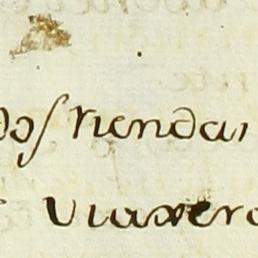 dos riendar
Viaxero